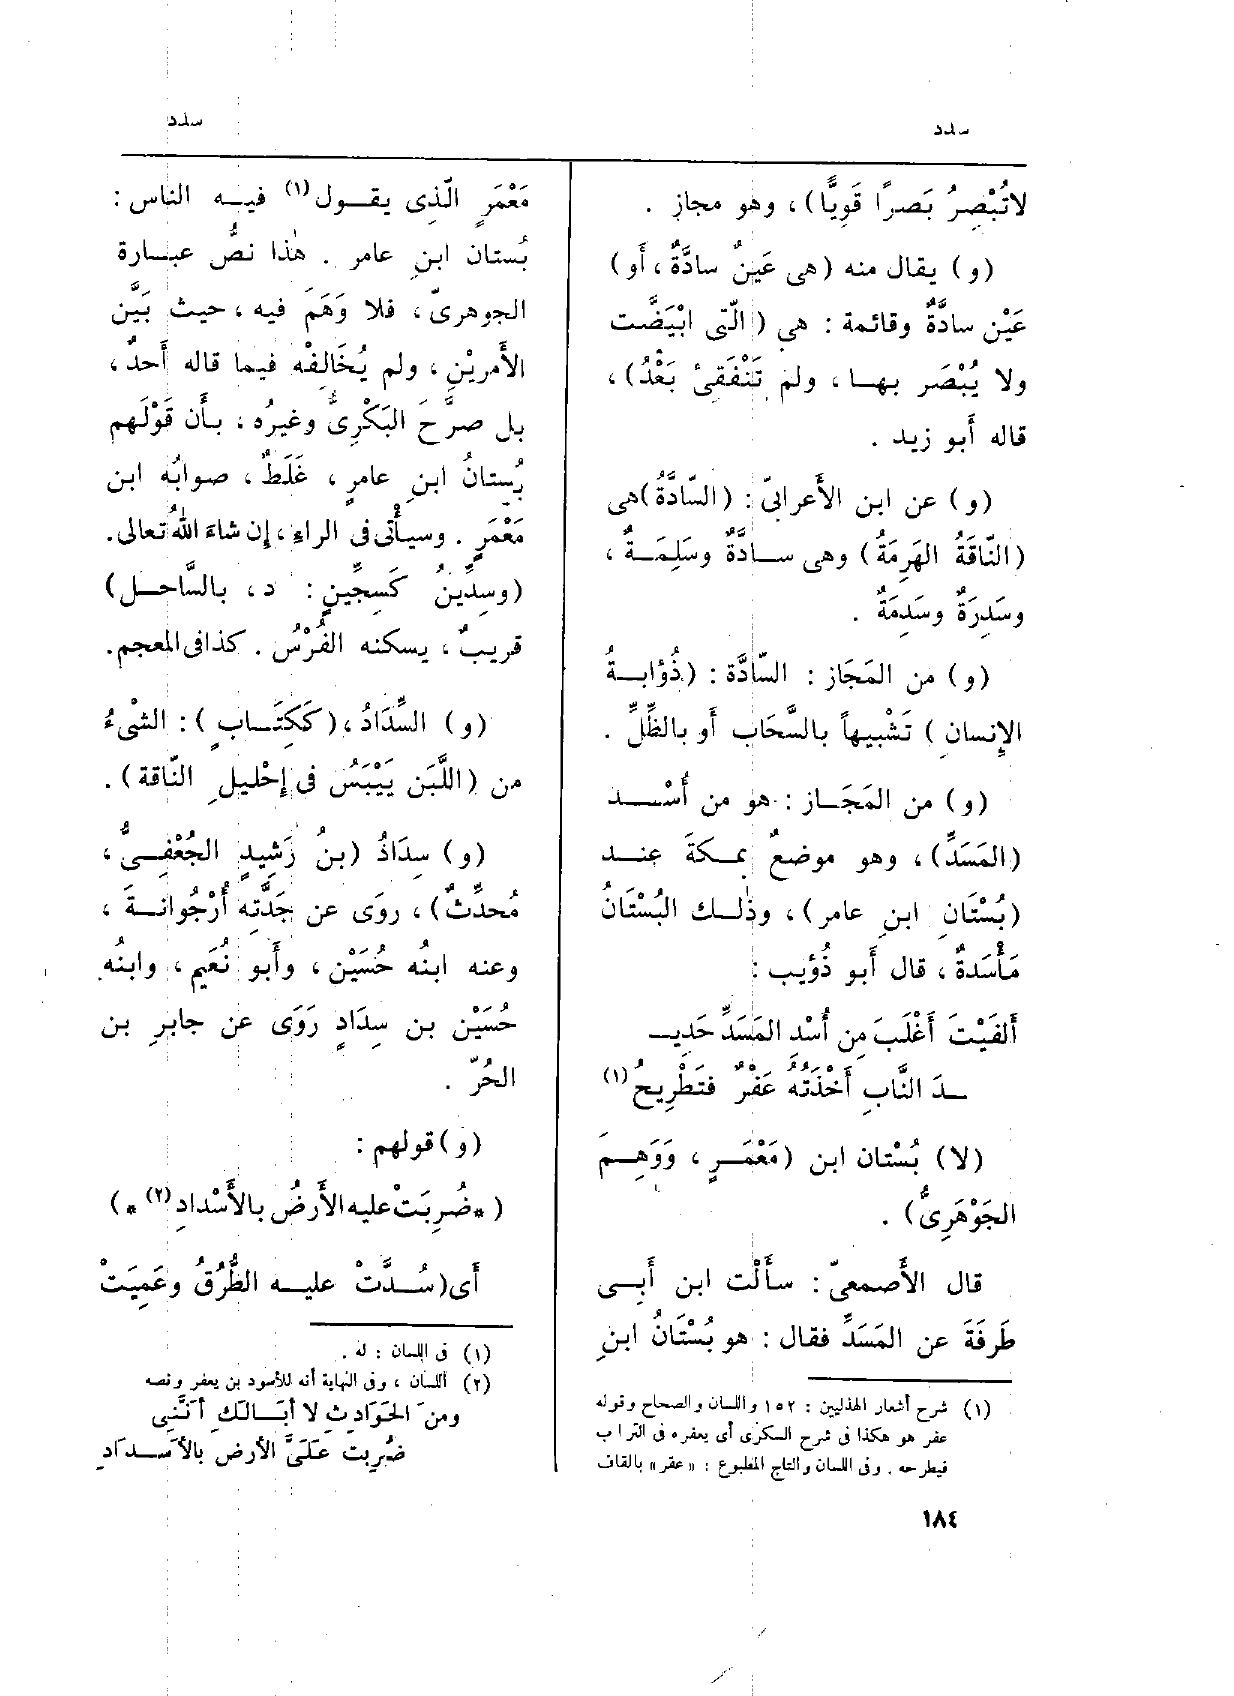 سدد
سدد
لاتُبْصِرُ بَصرًا قَوِيًّا)، وهو مجاز .
(و) يقال منه (هى عَينٌ سادَّةٌ ، أَو)
عَيْن سادَّةٌ وقائمة : هى (الّتى ابْيَضَّت
ولا يُبْصَر بهـا ، ولم تَنْفَقِئْ بَعْدُ)،
قاله أَبو زيد .
(و) عن ابن الأَعرابىّ : (السّادَّةُ) هى
(النّاقَةُ الهَرِمَةُ) وهى سـادَّةٌ وسَلِمَـةٌ ،
وسَدِرَةٌ وسَدِمَةٌ .
(و) من المَجَاز : السّادَّة : (ذُؤابـةُ
الإِنسان) تَشْبيهاً بالسَّحَاب أَو بالظِّلِّ .
(و) من المَجَـاز : هو من أُسْـد
(المَسَدِّ)، وهو موضعٌ بمـكةَ عِنـد
(بُسْتَانِ ابنِ عامر)، وذٰلـك البُسْتَانُ
مَأْسَدةٌ ، قال أَبو ذُؤيب :
أَلفَيْتَ أَغْلَبَ مِن أُسْد المَسَدِّ حَديـ
ـدَ النَّابِ أَخْذَتُهُ عَفْرٌ فتَطْرِيحُ (١)
(لا) بُسْتان ابن (مَعْمَـرٍ ، وَوَهِـمَ
الجَوْهَرِىُّ) .
قال الأَصمعىّ : سأَلْت ابن أَبـى
طَرفَةَ عن المَسَدِّ فقال : هو بُسْتَانُ ابنِ
(١) شرح أشعار الهذليين : ١٥٢ واللسان والصحاح وقوله
عفر هو هكذا فى شرح السكرى أى يعفره فى التراب
فيطرحه . وفى اللسان والتاج المطبوع : « عقر » بالقاف
مَعْمَرٍ الَّذِى يقـول (١) فيـه الناس :
بُستان ابنِ عامر . هٰذا نصُّ عبـارة
الجوهرىّ ، فلا وَهَمَ فيه ، حيث بَيَّن
الأَمريْنِ ، ولم يُخَالِفْه فيما قاله أَحدٌ ،
بل صرَّحَ البَكْرِىُّ وغيرُه ، بأَن قَوْلَهم
بُستانُ ابنِ عامرٍ ، غَلَطٌ ، صوابُه ابن
مَعْمَرٍ . وسيأْتى فى الراءِ ، إِن شاءَ اللهُ تعالى .
(وسِدِّينٌ كَسِجِّينٍ : د ، بالسَّاحـل)
قريبٌ ، يسكنه الفُرْسُ . كذا فى المعجم .
(و) السِّدَادُ ، (كَكِتَـابٍ) : الشىْءُ
من (اللَّبَن يَيْبَسُ فى إِحْليلِ النّاقة) .
(و) سِدَادُ (بنُ رَشِيدٍ الجُعْفِـىُّ ،
مُحدِّثٌ)، روَى عن جَدَّتِه أُرْجُوانـةَ ،
وعنه ابنُه حُسَيْن ، وأَبو نُعَيم ، وابنُه
حُسَيْن بن سِدَادٍ رَوَى عن جابرِ بن
الحُرّ .
(و) قولهم :
( * ضُرِبَتْ عليه الأَرضُ بالأَسْدادِ (٢) * )
أَى (سُـدَّتْ عليـه الطُّرُقُ وعَمِيَتْ
(١) فى اللسان : له .
(٢) اللسان ، وفى النهاية أنه للأسود بن يعفر ونصه
ومن الحَوَادِثِ لا أبَـالَكِ أنَّنِى
ضُرِبت عَلَىَّ الأرض بالأسْـدَادِ
١٨٤